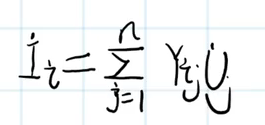 İ_i = \sum_{j=1}^{n} Y_{ij} U̇_j